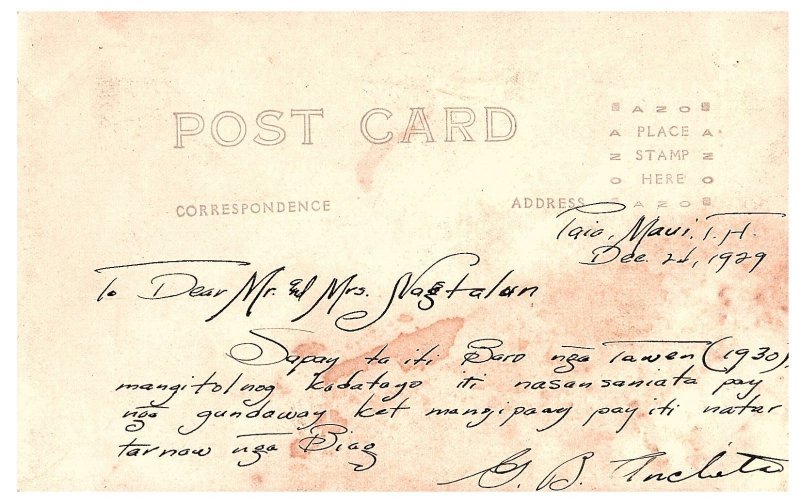 POST CARD
AZO
A PLACE A
Z STAMP Z
O HERE O
AZO
CORRESPONDENCE
ADDRESS
Paia, Maui, T.H.
Dec. 1929
To Dear Mr. and Mrs. Nagtalon
Sapay ta iti Baro nga Tawen (1930),
mangitolnog kadatayo iti nasansaniata pay
nga gundaway ket mangipaay pay iti natar
tarnaw nga Biag
G. B. Ancheta